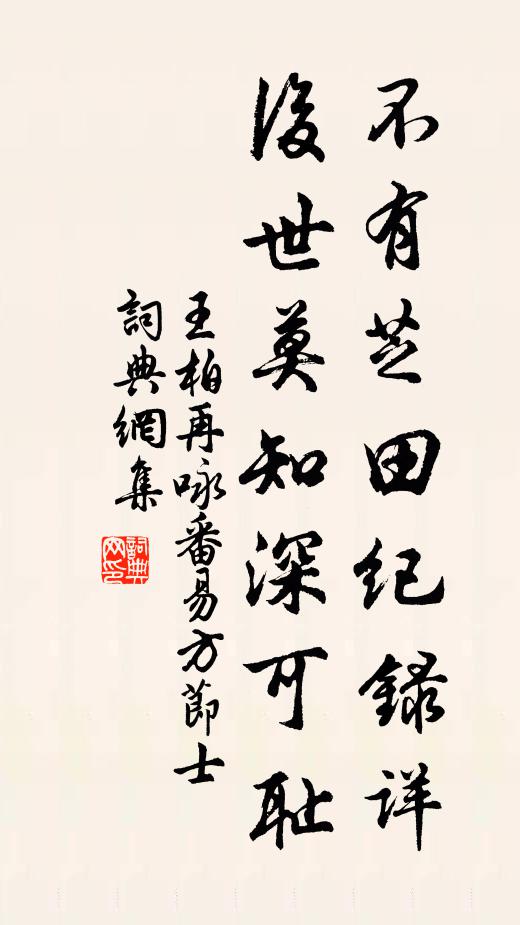 不有芝田纪録详
後世莫知深可耻
王柏再咏番易方節士
詞典網集
詞典网印